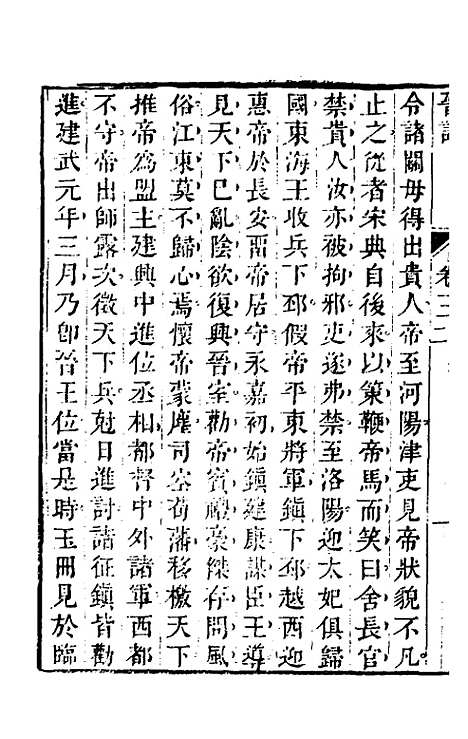 晉記 卷三二
令諸關毋得出貴人帝至河陽津吏見帝狀貌不凡
止之從者宋典自後來以策鞭帝馬而笑曰舍長官
禁貴人汝亦被拘邪吏遂弗禁至洛陽迎太妃俱歸
國東海王收兵下邳假帝平東將軍鎮下邳越西迎
惠帝於長安畱帝居守永嘉初始鎮建康謀臣王導
見天下已亂陰欲復興晉室勸帝賓禮豪傑存問風
俗江東莫不歸心焉懷帝蒙塵司空荀藩移檄天下
推帝為盟主建興中進位丞相都督中外諸軍西都
不守帝出師露次徵天下兵尅日進討諸征鎮皆勸
進建武元年三月乃卽晉王位當是時玉冊見於臨